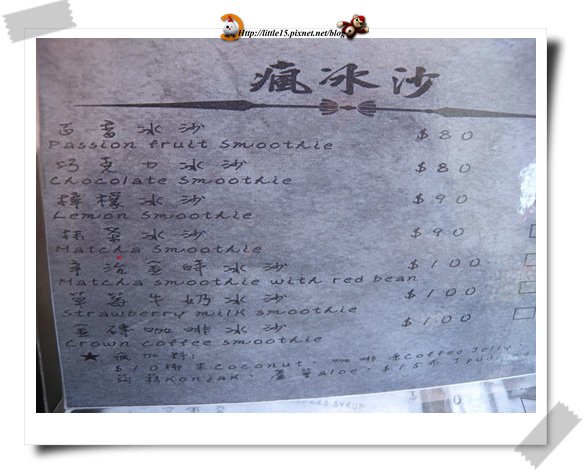 Http://little15.pixnet.net/blog
瘋冰沙
百香冰沙 $80
Passion fruit smoothie
巧克力冰沙 $80
Chocolate smoothie
檸檬冰沙 $90
Lemon smoothie
抹茶冰沙 $90
Matcha smoothie
宇治金時冰沙 $100
Matcha smoothie with red bean
草莓牛奶冰沙 $100
Strawberry milk smoothie
金磚咖啡冰沙 $100
Crown coffee smoothie
★ 加料:
$10椰果Coconut、咖啡凍Coffee Jelly、
蒟蒻Konjak、蘆薈aloe、$15布丁pudding